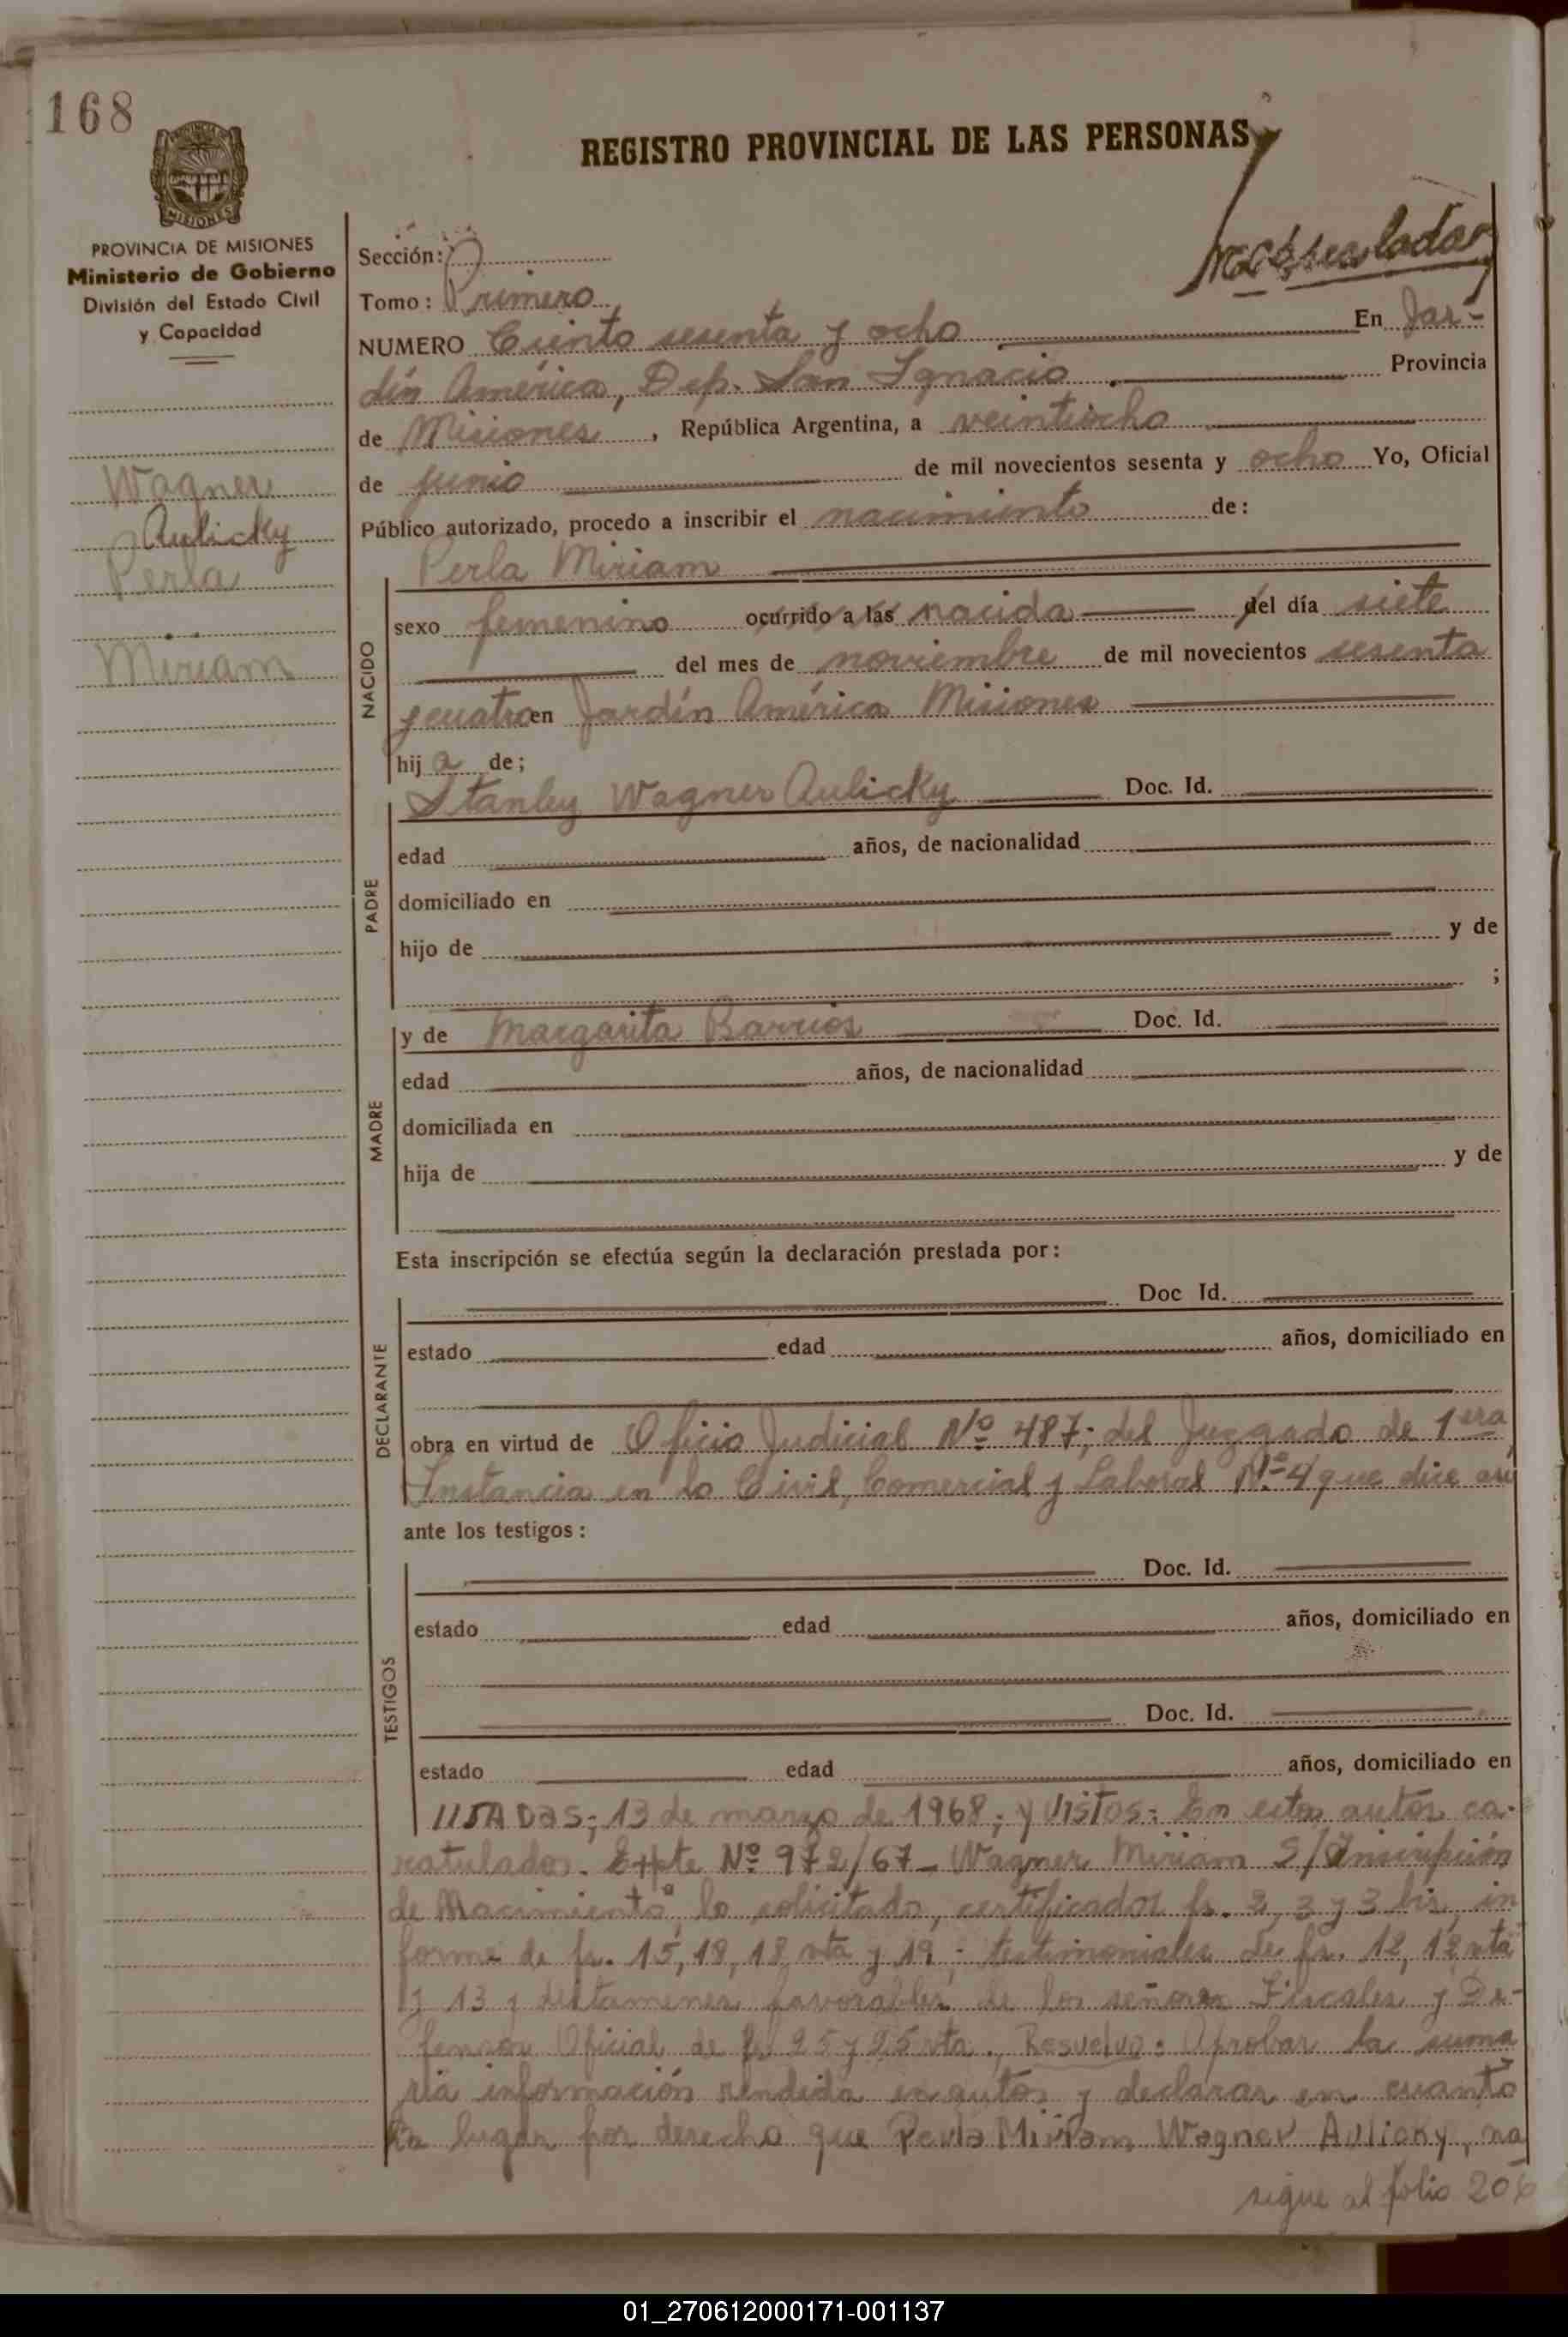 168
REGISTRO PROVINCIAL DE LAS PERSONAS
MISIONES
PROVINCIA DE MISIONES
Ministerio de Gobierno
División del Estado Civil
y Capacidad
Wagner
Aulicky
Perla
Miriam
Sección:
Tomo: Primero
NUMERO Ciento sesenta y ocho En Jar-
dín América, Dep. San Ignacio Provincia
de Misiones, República Argentina, a veintiocho
de junio de mil novecientos sesenta y ocho Yo, Oficial
Público autorizado, procedo a inscribir el nacimiento de:
Perla Miriam
NACIDO
sexo femenino ocurrido a las nacida del día siete
del mes de noviembre de mil novecientos sesenta
y cuatro en Jardín América Misiones
hija de;
PADRE
Stanley Wagner Aulicky Doc. Id.
edad años, de nacionalidad
domiciliado en
hijo de y de
;
MADRE
y de Margarita Barrios Doc. Id.
edad años, de nacionalidad
domiciliada en
hija de y de
Esta inscripción se efectúa según la declaración prestada por:
DECLARANTE
Doc Id.
estado edad años, domiciliado en
obra en virtud de Oficio Judicial Nº 487; del Juzgado de 1era
Instancia en lo Civil, Comercial y Laboral Nº 4 que dice así
ante los testigos:
TESTIGOS
Doc. Id.
estado edad años, domiciliado en
Doc. Id.
estado edad años, domiciliado en
13 de marzo de 1968; y Vistos: En estos autos ca-
ratulados. Expte Nº 972/67 - Wagner Miriam S/Inscripción
de Nacimiento, lo solicitado, certificados fs. 2, 3 y 3 bis, in
forme de fs. 15, 18, 18 vta y 19; testimoniales de fs. 12, 12 vta
y 13 y dictamenes favorables de los señores Fiscales y De-
fensor Oficial de fs 25 y 25 vta., Resuelvo: Aprobar la suma
ria información rendida en autos y declarar en cuanto
ha lugar por derecho que Perla Miriam Wagner Aulicky, na
sigue al folio 206
01_270612000171-001137